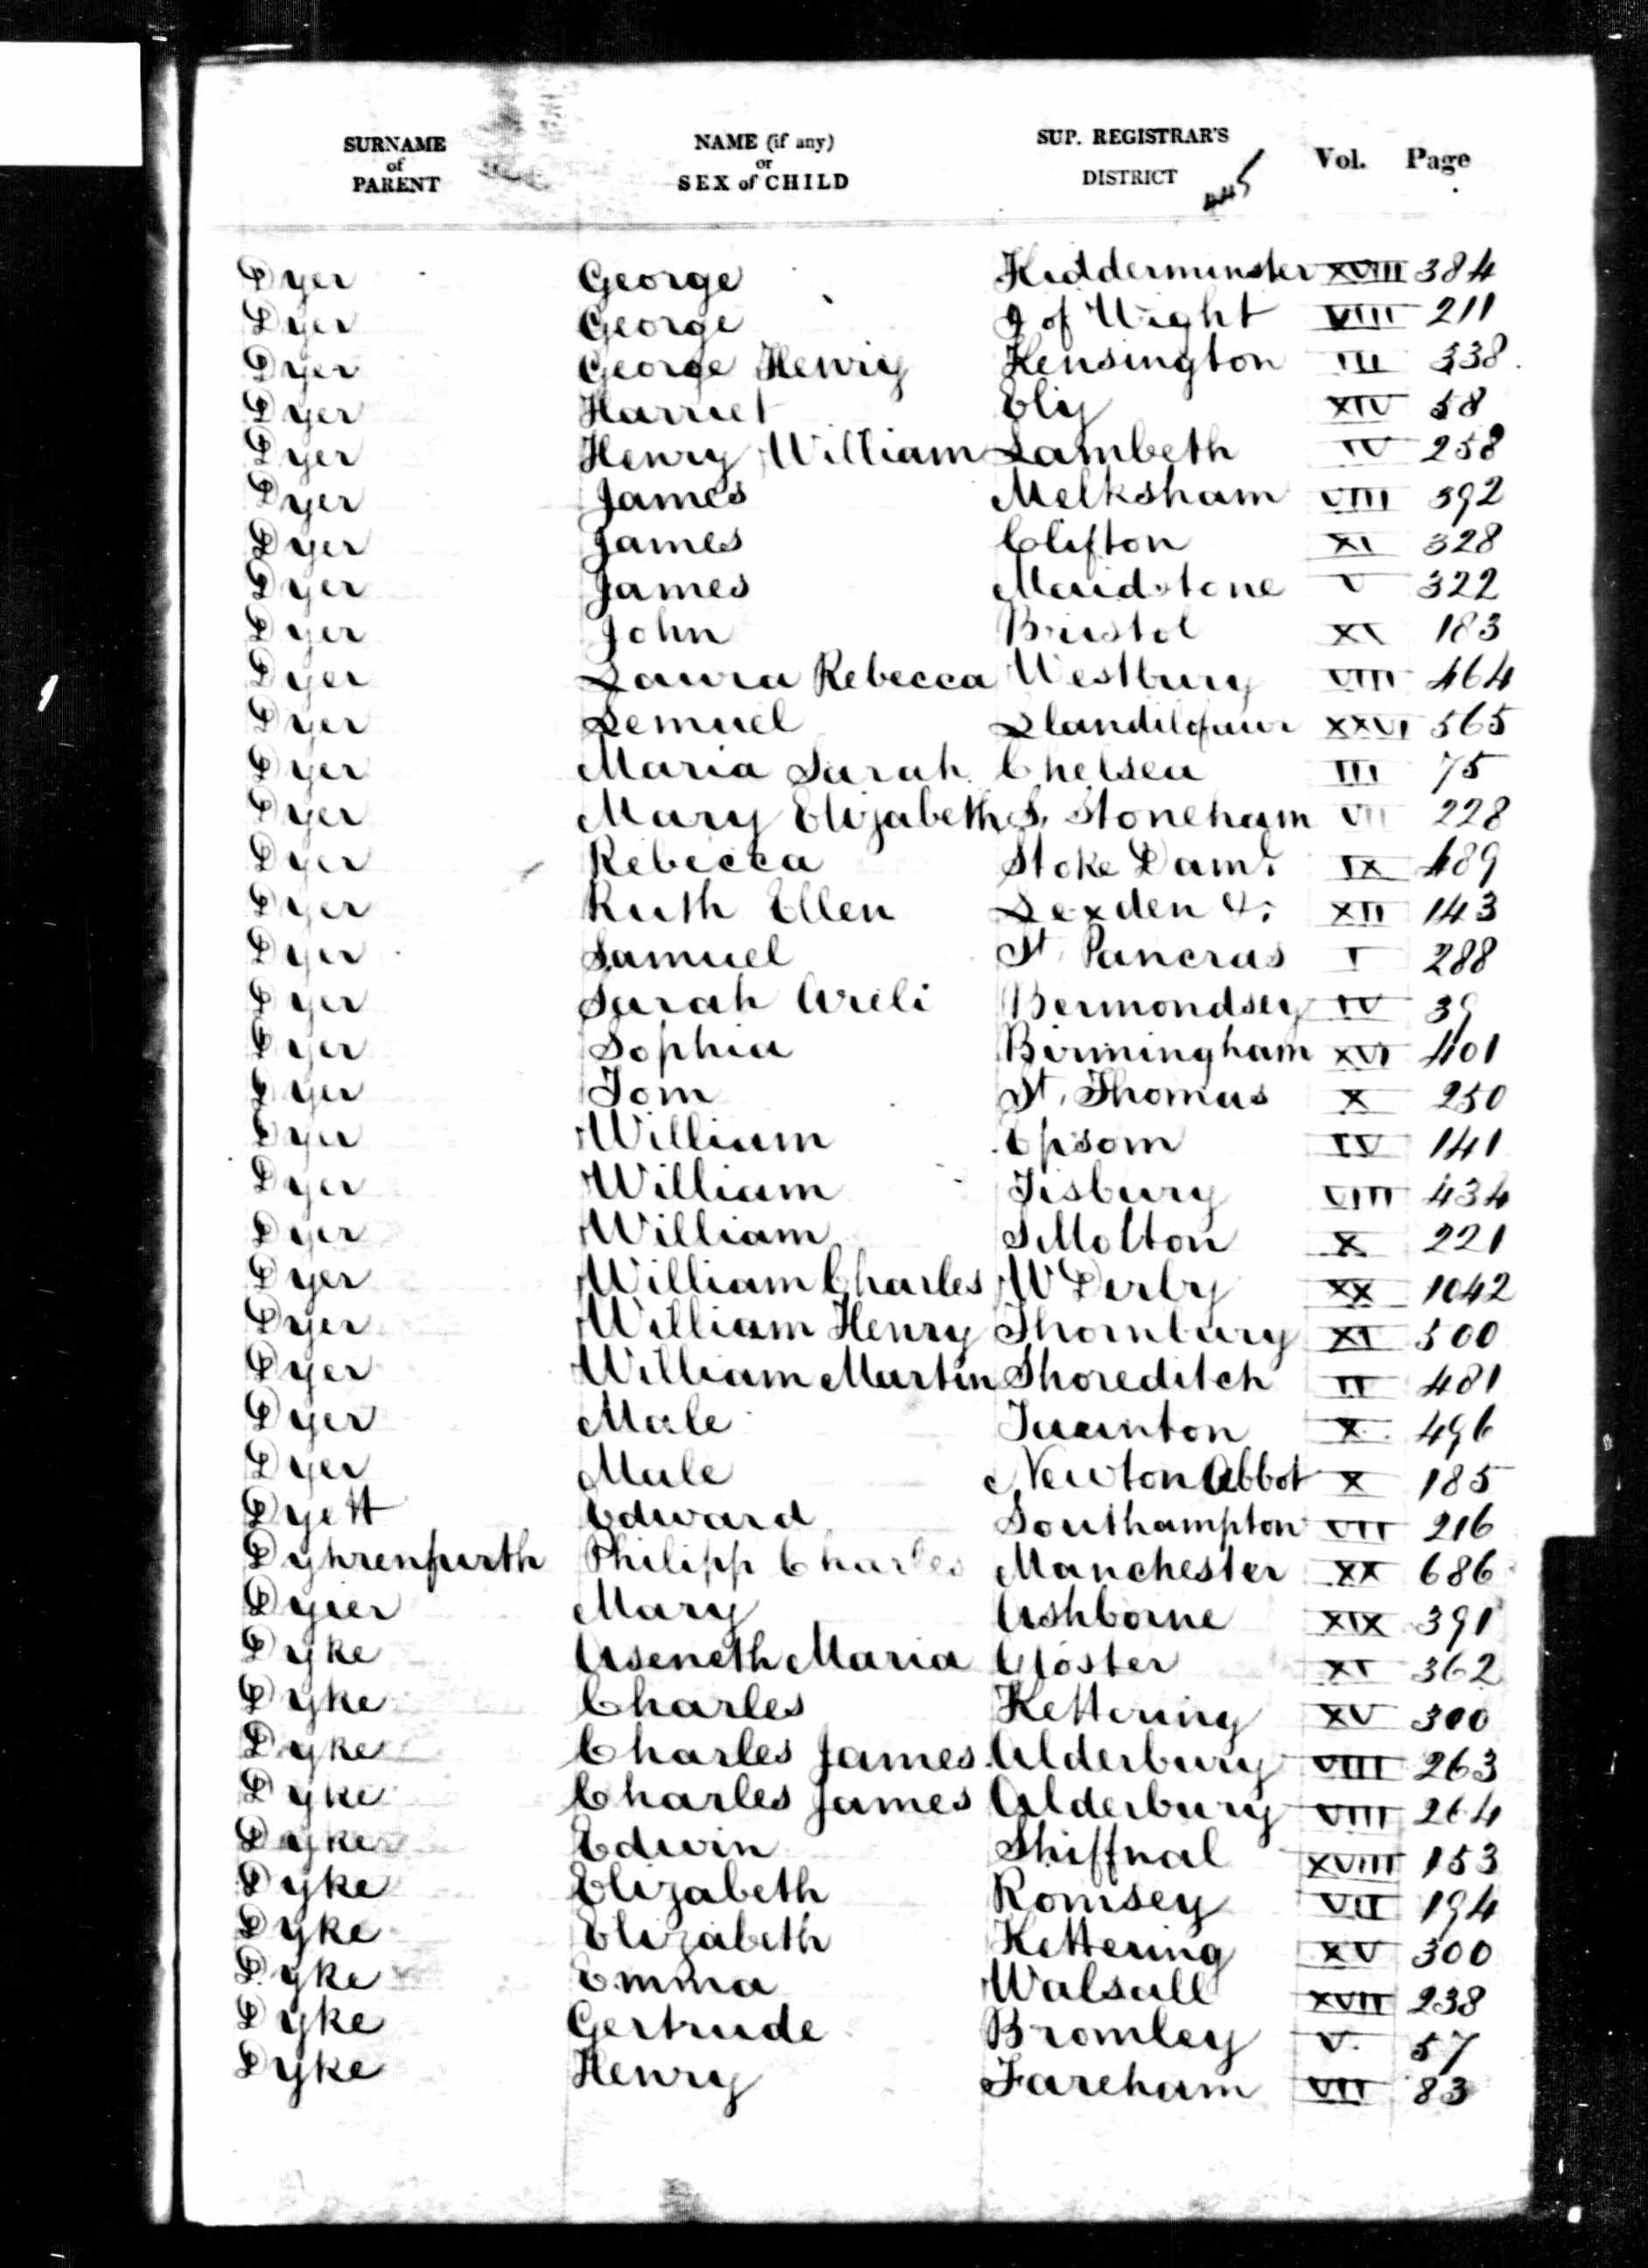 SURNAME of PARENT NAME (if any) or SEX of CHILD SUP. REGISTRAR'S DISTRICT Vol. Page
Dyer George Kidderminster XVIII 384
Dyer George I of Wight VIII 211
Dyer George Henry Kensington III 338
Dyer Harriet Ely XIV 58
Dyer Henry William Lambeth IV 258
Dyer James Melksham VIII 392
Dyer James Clifton XI 328
Dyer James Maidstone V 322
Dyer John Bristol XI 183
Dyer Laura Rebecca Westbury VIII 464
Dyer Lemuel Llandilofawr XXVI 565
Dyer Maria Sarah Chelsea III 75
Dyer Mary Elizabeth S. Stoneham VII 228
Dyer Rebecca Stoke Dam. IX 489
Dyer Ruth Ellen Lexden &. XII 143
Dyer Samuel St. Pancras I 288
Dyer Sarah Areli Bermondsey IV 39
Dyer Sophia Birmingham XVI 401
Dyer Tom St. Thomas X 250
Dyer William Epsom IV 141
Dyer William Tisbury VIII 434
Dyer William S Molton X 221
Dyer William Charles W Derby XX 1042
Dyer William Henry Thornbury XI 500
Dyer William Martin Shoreditch II 481
Dyer Male Taunton X 496
Dyer Male Newton Abbot X 185
Dyett Edward Southampton VII 216
Dyhrenfurth Philipp Charles Manchester XX 686
Dyier Mary Ashborne XIX 391
Dyke Aseneth Maria Gloster XI 362
Dyke Charles Kettering XV 300
Dyke Charles James Alderbury VIII 263
Dyke Charles James Alderbury VIII 264
Dyke Edwin Shiffnal XVIII 153
Dyke Elizabeth Romsey VII 194
Dyke Elizabeth Kettering XV 300
Dyke Emma Walsall XVII 238
Dyke Gertrude Bromley V. 57
Dyke Henry Fareham VII 83